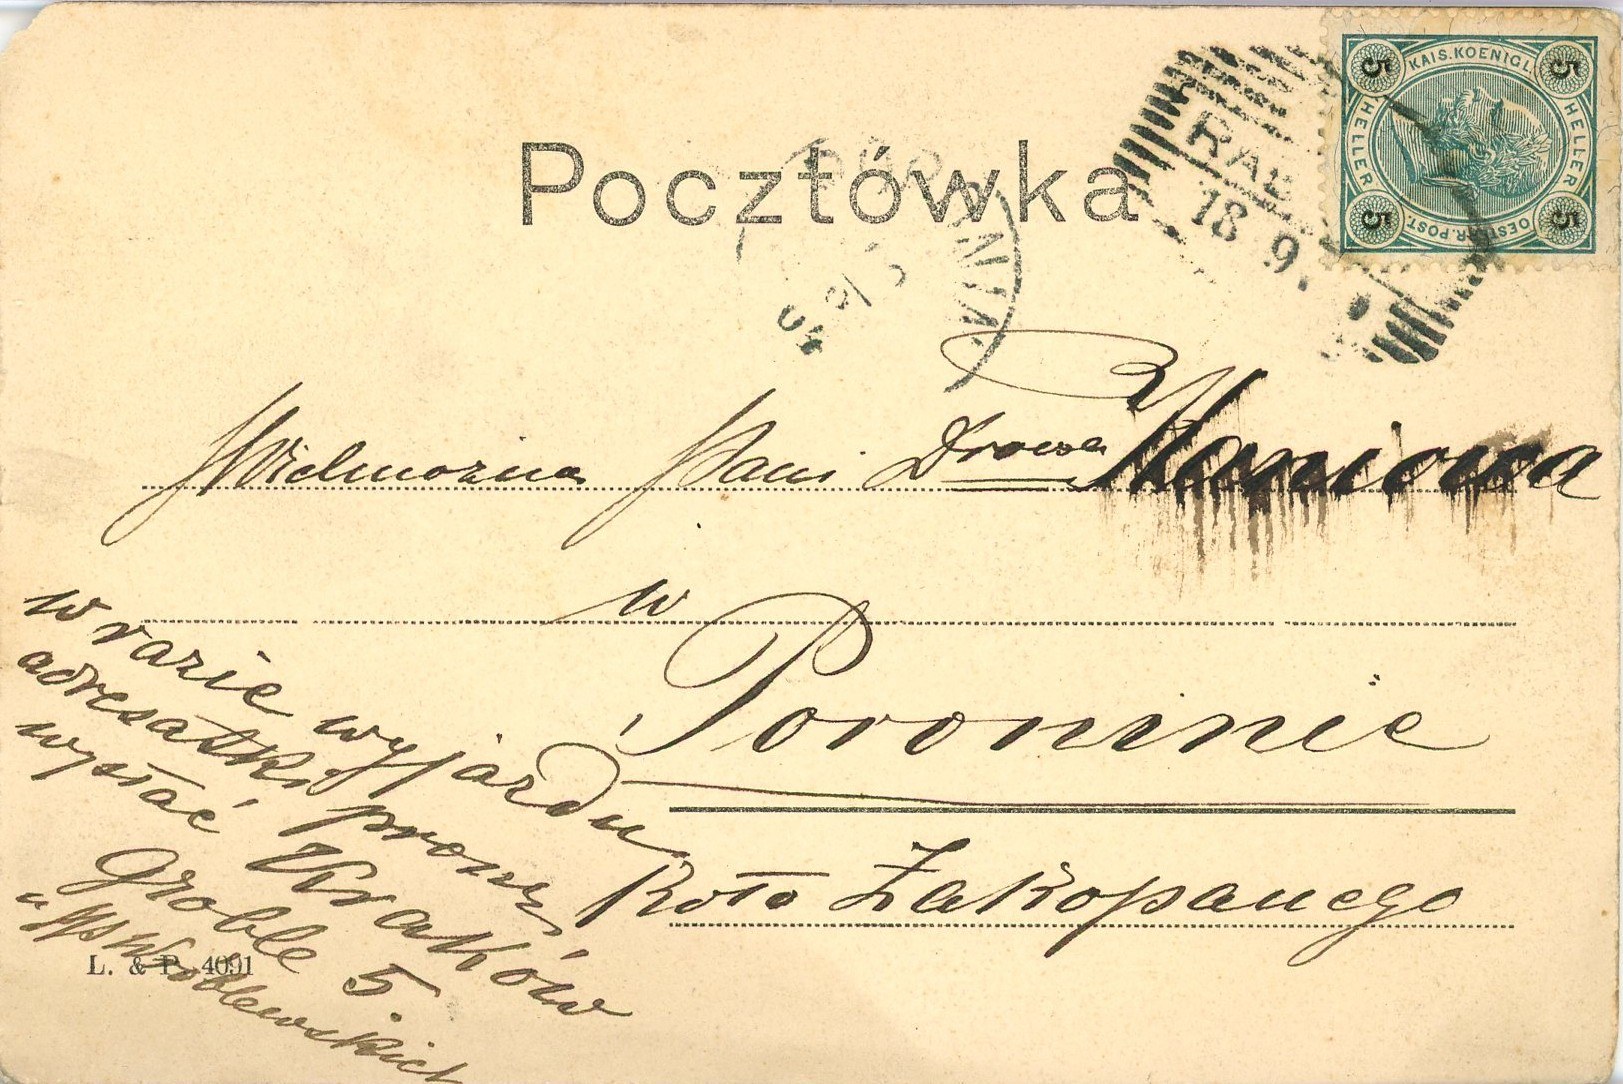 Pocztówka
KAIS. KOENIGL.
OESTERR. POST.
HELLER
HELLER
5
5
5
5
RAB
18 9
04
Wielmożna Pani Drowa
w
Poroninie
koło Zakopanego
w razie wyjazdu
adresatki proszę
wysłać Kraków
Groble 5
L. & P. 4091